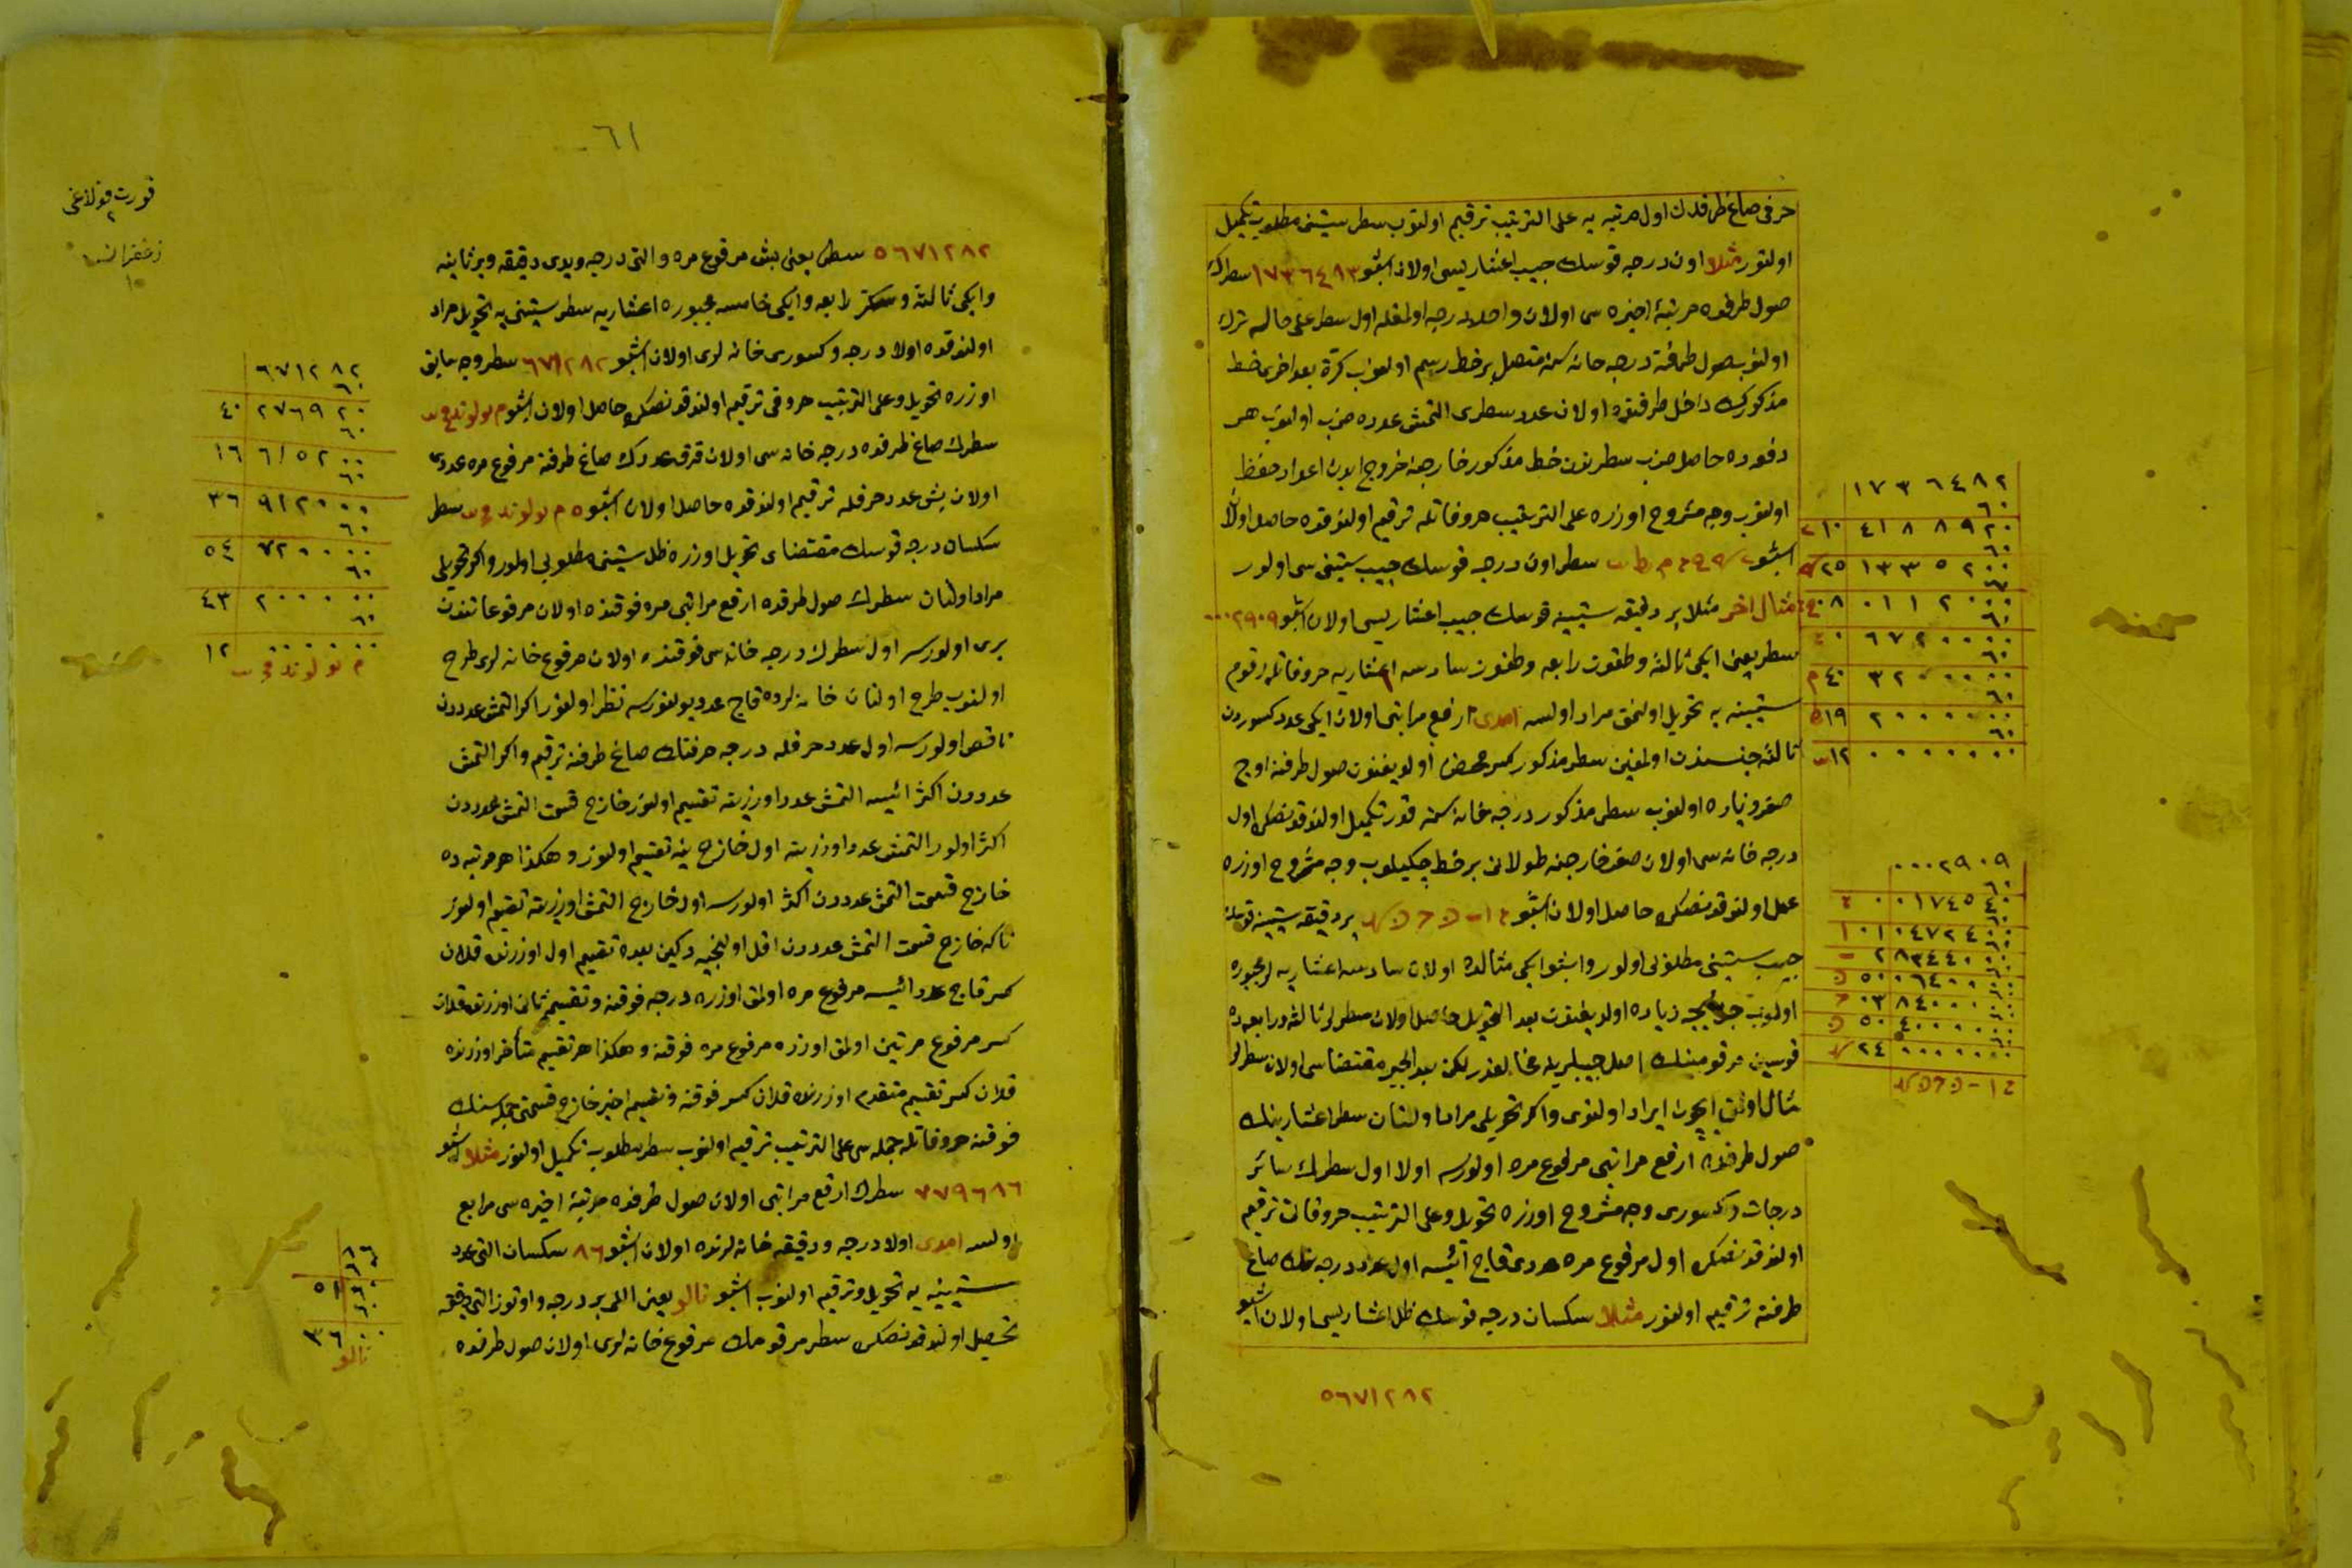 حرفی صاغ طرفدن اول مرتبه یه علی الترتیب ترقیم اولنوب سطر ستینی مطلوب تکمیل
اولنور مثلا اون درجه قوسك جیب اعشاریسی اولان اشبو ١٧٣٦٤٨٣ سطرك
صول طرفنده مرتبهٔ اخیره سی اولان واحد درجه اولمغله اول سطر علی حاله ترك
اولنوب صول طرفنه درجه خانه سنه متصل بر خط رسم اولنوب کرة بعد اخری خط
مذکورك داخل طرفنده اولان عدد سطری التمش عدده ضرب اولنوب هر
دفعه ده حاصل ضرب سطرندن خط مذکور خارجنه خروج ایدن اعداد حفظ
اولنوب وجه مشروح اوزره علی الترتیب حروفاتله ترقیم اولندقده حاصل اولان
اشبو سطر اون درجه قوسك جیب ستینی سی اولور
مثال اخر مثلا بر دقیقه ستینیه قوسك جیب اعشاریسی اولان اشبو ٠٠٠٢٩٠٩
سطر یعنی ایکی ثالثه و طقوز رابعه و طقوز سادسه اعشاریه حروفاتله رقوم
ستینیه یه تحویل اولنمق مراد اولسه امدی ارفع مراتبی اولان ایکی عدد کسوردن
ثالثه جنسندن اولمغین سطر مذکور کسر محض اولدیغندن صول طرفنه اوج
صفر زیاده اولنوب سطر مذکور درجه خانه سنه قدر تکمیل اولندقدنصکره اول
درجه خانه سی اولان صفر خارجنه طولانی بر خط چکیلوب وجه مشروح اوزره
عمل اولندقدنصکره حاصل اولان اشبو بر دقیقه ستینیه قوسك
جیب ستینی مطلوبی اولور و اشبو ایکی مثالده اولان سادسه اعشاریه لر مجبوره
اولنوب جزئیجه زیاده اولدیغندن بعد التحویل حاصل اولان سطرلر ثالثه و رابعه ده
قوسین مرقومینك اصل جیبلرینه مخالفدر لکن بعد الجبر مقتضاسی اولان سطرلر
مثال اولمق ایچون ایراد اولندی و اکر تحویلی مراد اولنان سطر اعشارینك
صول طرفنده ارفع مراتبی مرفوع مره اولورسه اولا اول سطرك سائر
درجات و کسوری وجه مشروح اوزره تحویل و علی الترتیب حروفاتی ترقیم
اولندقدنصکره اول مرفوع مره عددی قاج ایسه اول عدد درجه نك صاغ
طرفنه ترقیم اولنور مثلا سکسان درجه قوسك ظل اعشاریسی اولان اشبو
٥٦٧١٢٨٢
١٧٣٦٤٨٢
٦٠
١٠ ٤١٨٨٩٢٠
٦٠
٢٥ ١٣٣٥٢٠٠
٦٠
٠٨ ٠١١٢٠٠٠
٦٠
٠ ٦٧٢٠٠٠٠
٦٠
٤٠ ٣٢٠٠٠٠٠
٦٠
١٩ ٢٠٠٠٠٠٠
٦٠
١٢ ٠٠٠٠٠٠٠
٠٠٠٢٩٠٩
٠٠ ٠١٧٤٥٤٠
٠١ ٠٤٧٢٤٠٠
٢ ٨٣٤٤٠٠٠
٥٠ ٠٦٤٠٠٠٠
٠٣ ٨٤٠٠٠٠٠
٥٠ ٤٠٠٠٠٠٠
٢٤ ٠٠٠٠٠٠٠
٦١
قورت قولاغی
٢
١٠
٥٦٧١٢٨٢ سطری یعنی بش مرفوع مره و التی درجه و یدی دقیقه و بر ثانیه
و ایکی ثالثه و سکز رابعه و ایکی خامسه مجبوره اعشاریه سطر ستینی یه تحویل مراد
اولندقده اولا درجه و کسوری خانه لری اولان اشبو ٦٧١٢٨٢ سطر وجه سابق
اوزره تحویل و علی الترتیب حروفی ترقیم اولندقدنصکره حاصل اولان اشبو م یو لو ند مج یب
سطرك صاغ طرفنده درجه خانه سی اولان قرق عددك صاغ طرفنه مرفوع مره عددی
اولان بش عدد حرفله ترقیم اولندقده حاصل اولان اشبو ه م یو لو ند مج یب سطر
سکسان درجه قوسك مقتضای تحویل اوزره ظل ستینی مطلوبی اولور و اکر تحویلی
مراد اولنان سطرك صول طرفنده ارفع مراتبی مره فوقنده اولان مرفوعاتندن
بری اولورسه اول سطرك درجه خانه سی فوقنده اولان مرفوع خانه لری طرح
اولنوب طرح اولنان خانه لرده قاج عدد بولنورسه نظر اولنور اکر التمش عددندن
ناقص اولورسه اول عدد حرفله درجه حرفنك صاغ طرفنه ترقیم و اکر التمش
عددندن اکثر ایسه التمش عدد اوزرینه تقسیم اولنور خارج قسمت التمش عددندن
اکثر اولور التمش عدد اوزرینه اول خارج ینه تقسیم اولنور و هکذا هر مرتبه ده
خارج قسمت التمش عددندن اکثر اولورسه اول خارج التمش اوزرینه تقسیم اولنور
تاکه خارج قسمت التمش عددندن اقل اولنجیه دکین بعده تقسیم اول اوزرنده قلان
کسر قاج عدد ایسه مرفوع مره اولمق اوزره درجه فوقنه و تقسیم ثانی اوزرنده قلان
کسر مرفوع مرتین اولمق اوزره مرفوع مره فوقنه و هکذا هر تقسیم متأخر اوزرنده
قلان کسر تقسیم متقدم اوزرنده قلان کسر فوقنه و تقسیم اخیر خارج قسمتی جمله سنك
فوقنه حروفاتله جمله سی علی الترتیب ترقیم اولنوب سطر مطلوب تکمیل اولنور مثلا اشبو
٧٧٩٦٨٦ سطرك ارفع مراتبی اولان صول طرفنده مرتبهٔ اخیره سی مرابع
اولسه امدی اولا درجه و دقیقه خانه لرنده اولان اشبو ٨٦ سکسان التی عدد
ستینیه یه تحویل و ترقیم اولنوب اشبو نا لو یعنی اللی بر درجه و اوتوز التی دقیقه
تحصیل اولندقدنصکره سطر مرقومك مرفوع خانه لری اولان صول طرفنده
٦٧١٢٨٢
٦٠
٤٠ ٢٧٦٩٢٠
٦٠
١٦ ٦١٥٢٠٠
٦٠
٣٦ ٩١٢٠٠٠
٦٠
٥٤ ٧٢٠٠٠٠
٦٠
٤٣ ٢٠٠٠٠٠
٦٠
١٢ ٠٠٠٠٠٠
م یو لو ند مج یب
٨٦
٥١
٣٦
نا لو